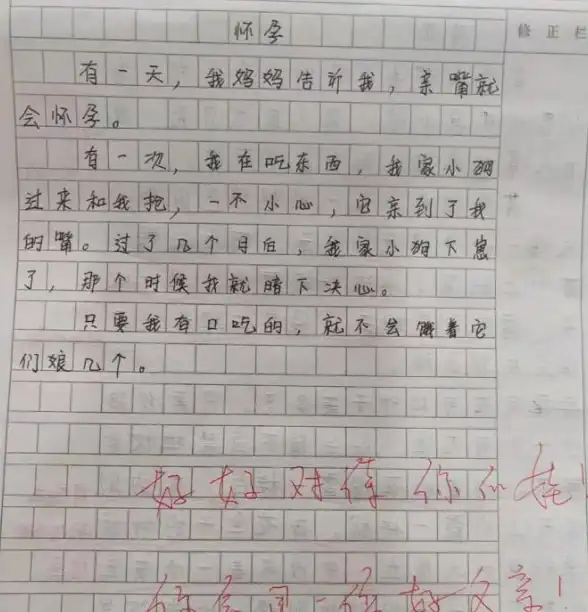 怀孕
修正栏
有一天，我妈妈告诉我，亲嘴就
会怀孕。
有一次，我在吃东西，我家小狗
过来和我抢，一不小心，它亲到了我
的嘴。过了几个月后，我家小狗下崽
了，那个时候我就暗下决心。
只要我有口吃的，就不会饿着它
们娘几个。
好好对待你的